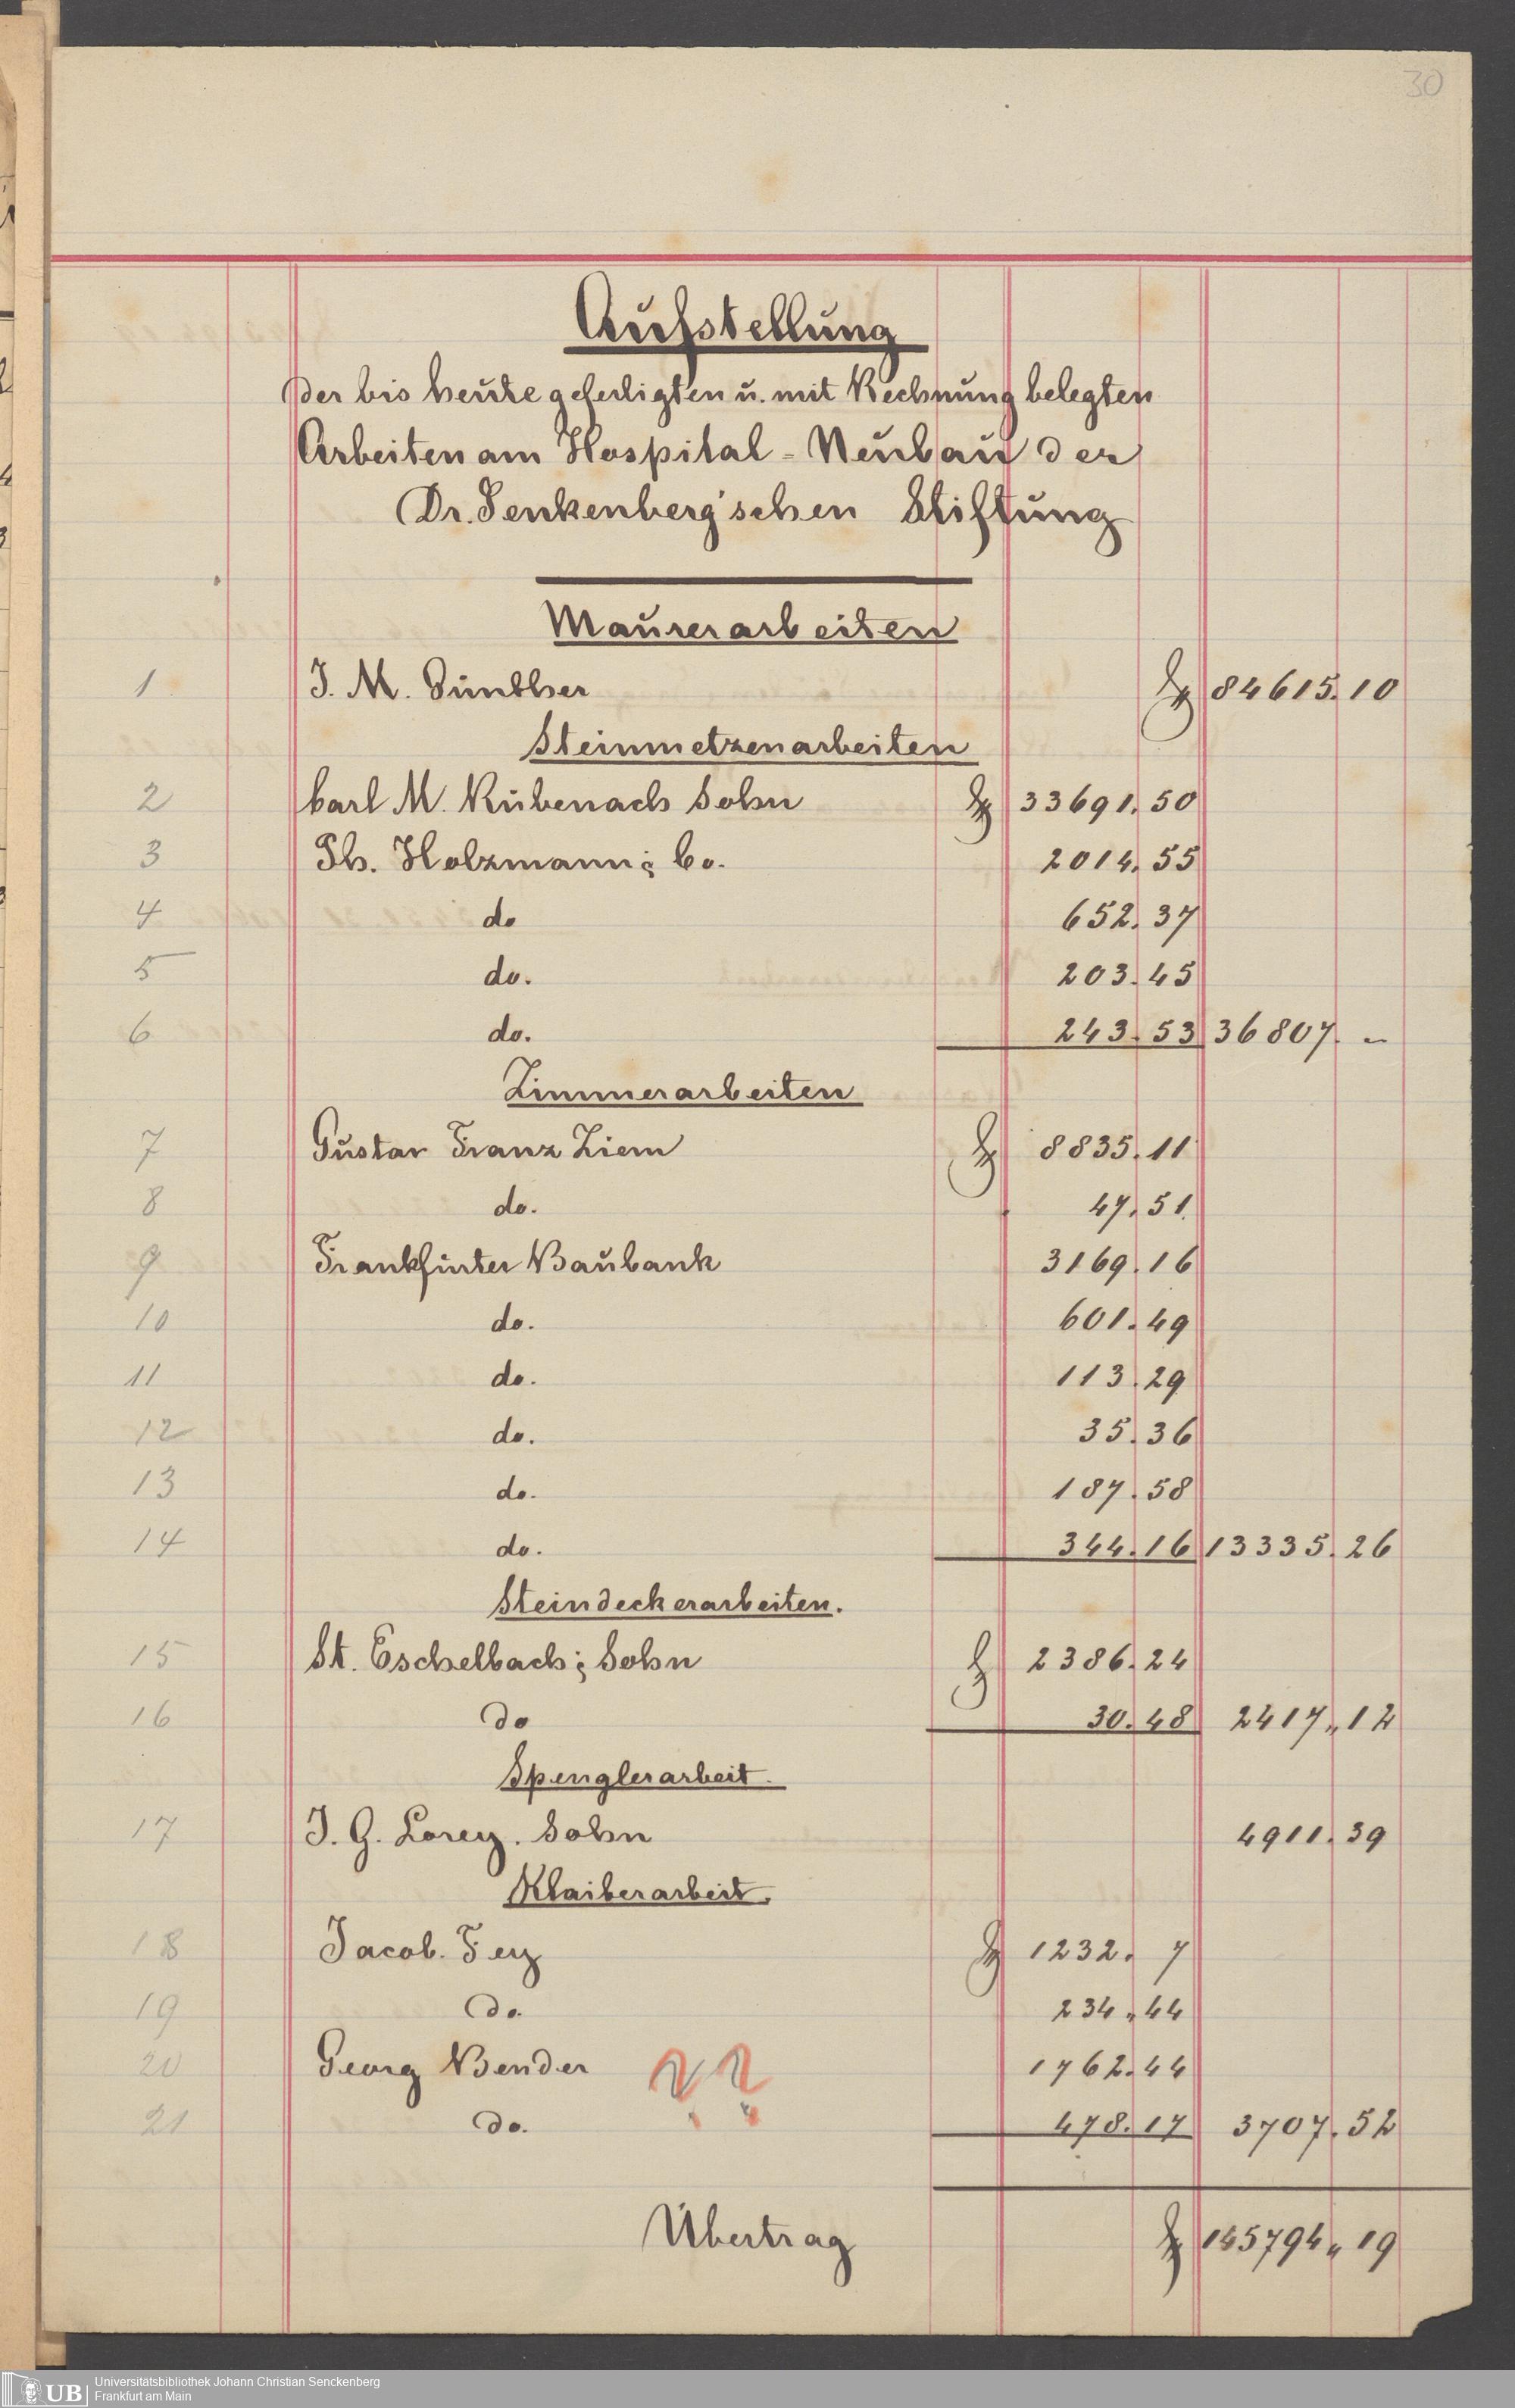 30
Aufstellung
der bis heute gefertigten u. mit Rechnung belegten
Arbeiten am Hospital-Neubau der
Dr. Senkenberg'schen Stiftung
Maurerarbeiten
1 J. M. Günther f 84615. 10
Steinmetzenarbeiten
2 Carl M. Rübenach Sohn f 33691. 50
3 Ph. Holzmann & Co. 2014. 55
4 do 652. 37
5 do. 203. 45
6 do. 243. 53 36807. -
Zimmerarbeiten
7 Gustav Franz Ziem f 8835. 11
8 do. 47. 51.
9 Frankfurter Baubank 3169. 16
10 do. 601. 49
11 do. 113. 29
12 do. 35. 36
13 do. 187. 58
14 do. 344. 16 13335. 26
Steindeckerarbeiten.
15 St. Eschelbach & Sohn f 2386. 24
16 do 30. 48 2417„ 12
Spenglerarbeit.
17 J. G. Lorey. Sohn 4911. 39
Klaiberarbeit.
18 Jacob. Fey f 1232. 7
19 do. 234„ 44
20 Georg Bender ?? 1762. 44
21 do. 478. 17 3707. 52
Übertrag f 145794„ 19
UB
Universitätsbibliothek Johann Christian Senckenberg
Frankfurt am Main